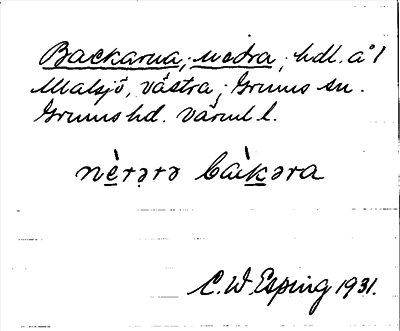 Backarna, nedra, hdl. å 1
Malsjö, västra, Grums sn.
Grums hd. Värml l.
nèrərə bàkəra
C. W. Esping 1931.